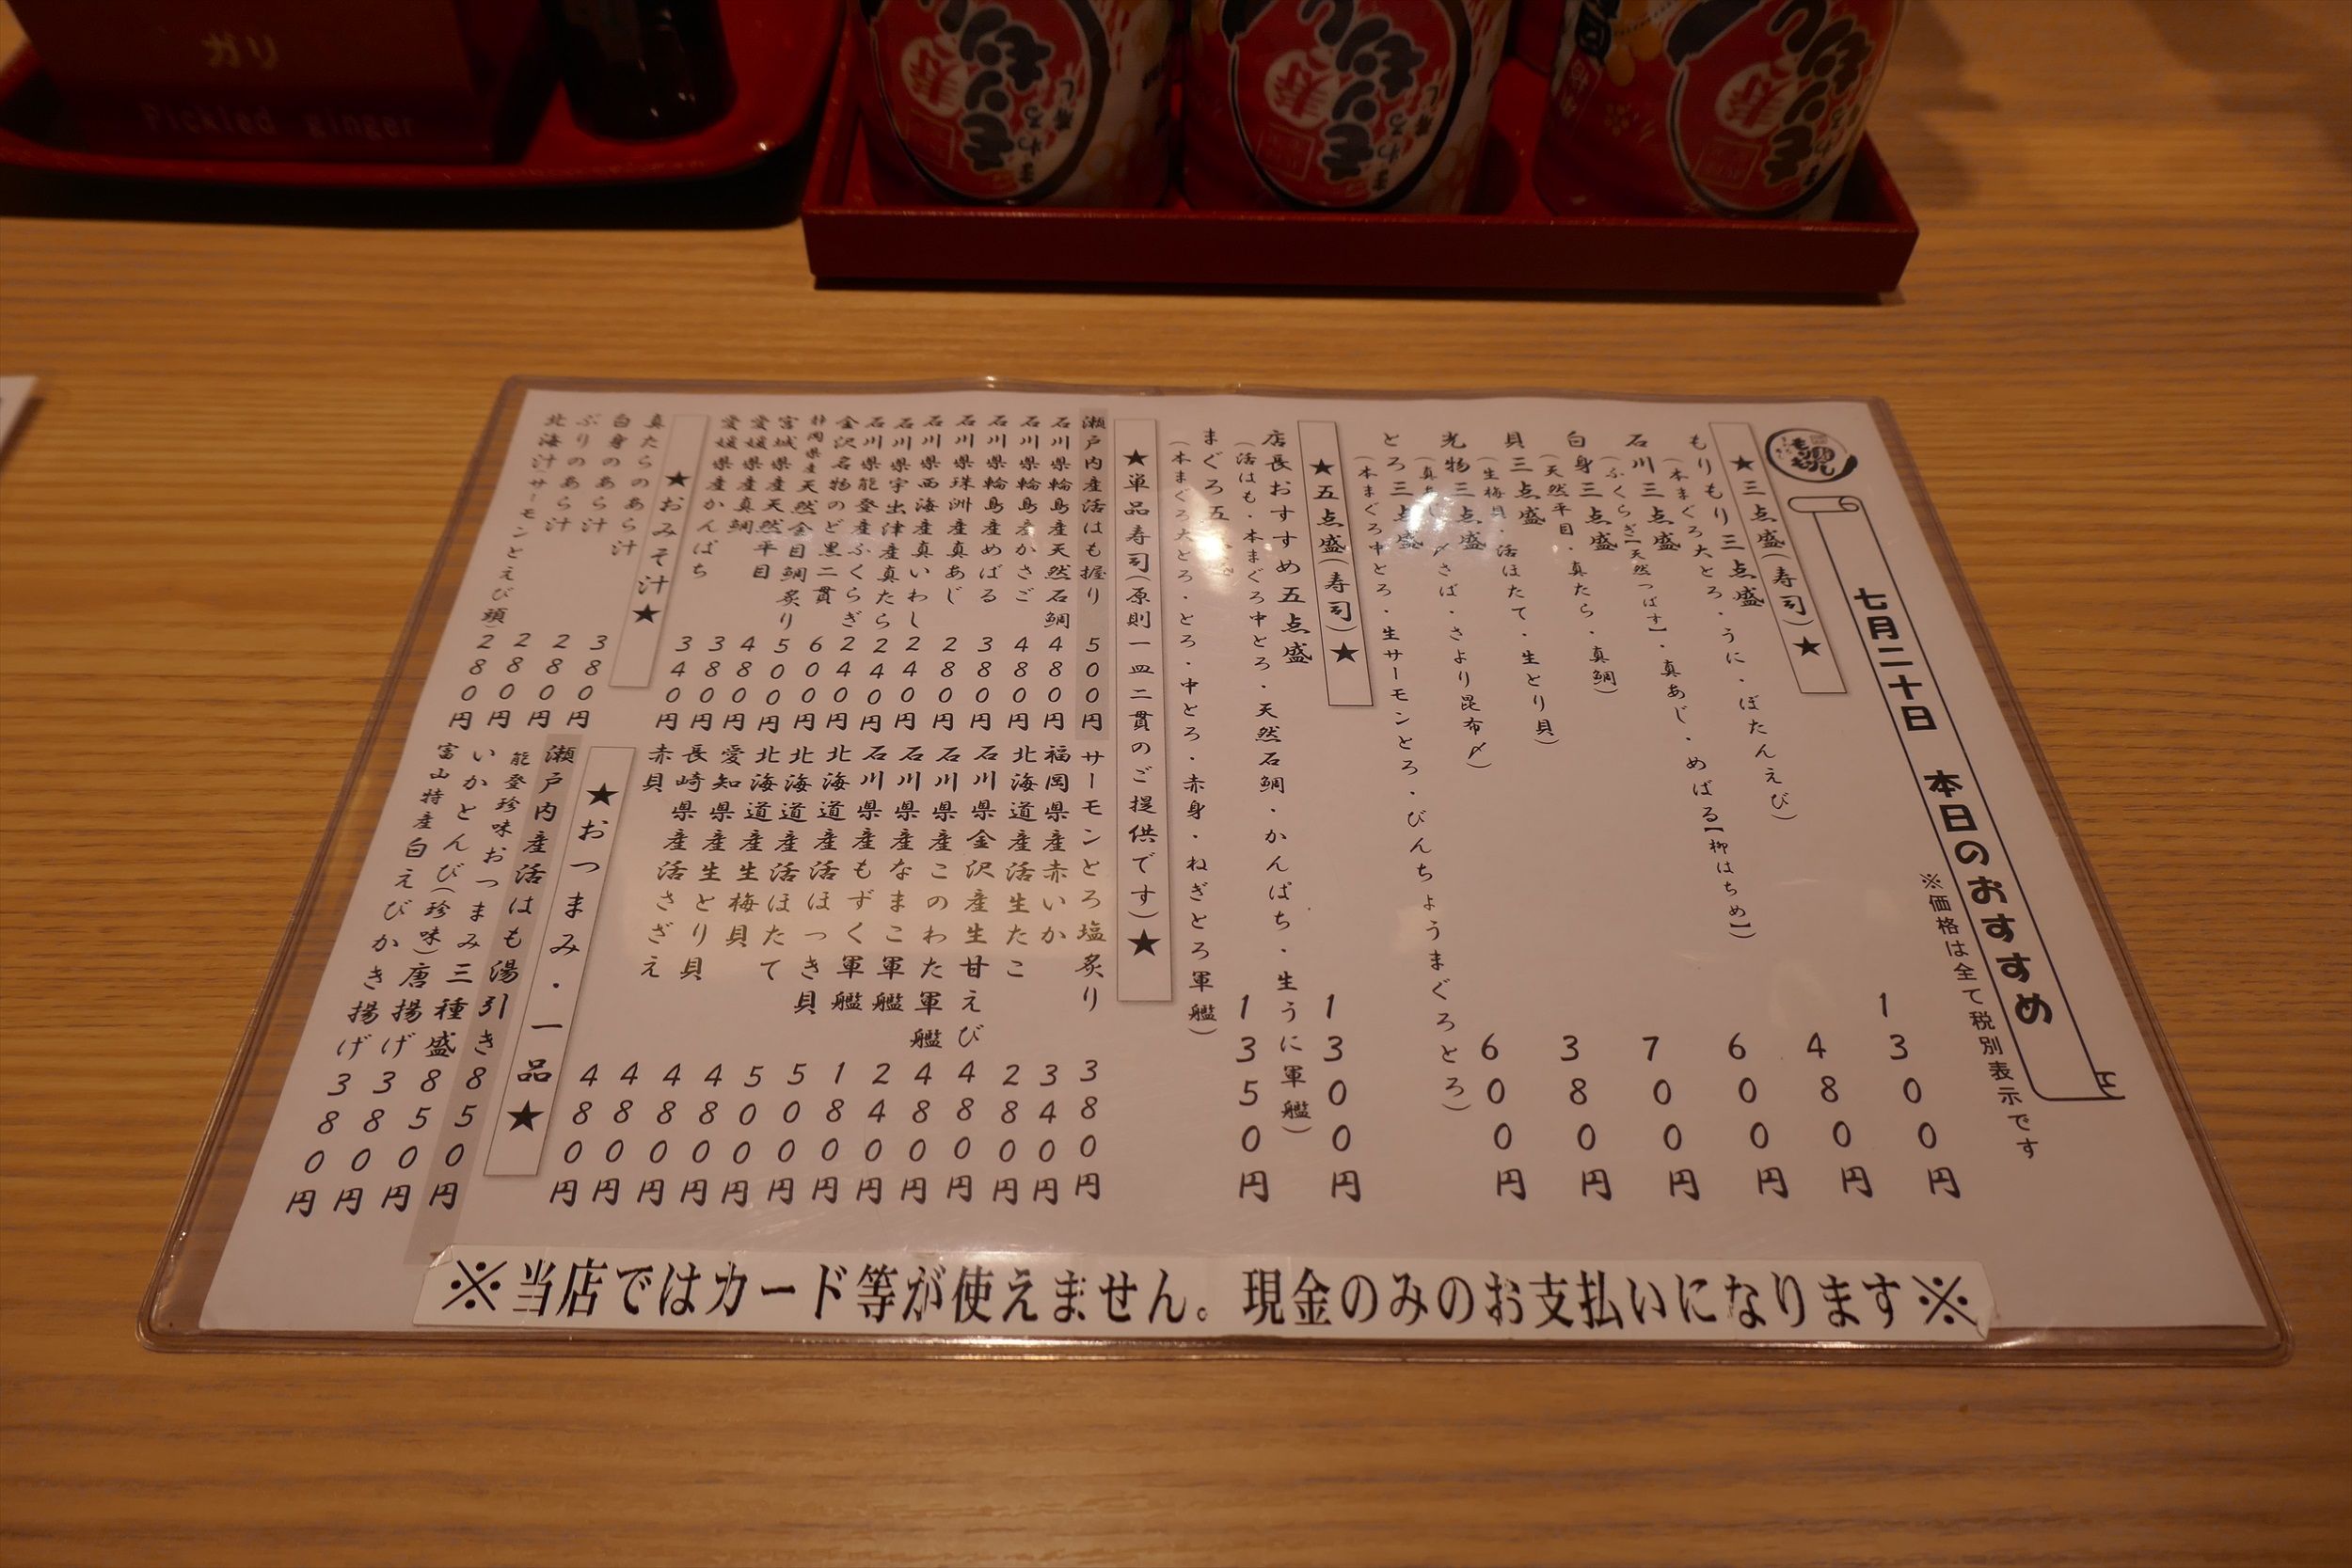 ガリ
Pickled ginger
七月二十日 本日のおすすめ
※価格は全て税別表示です
★三点盛(寿司)★
もりもり三点盛 1300円
(本まぐろ大とろ・うに・ぼたんえび)
石川三点盛 480円
(ふくらぎ【天然つばす】・真あじ・めばる【柳はちめ】)
白身三点盛 600円
(天然平目・真たら・真鯛)
貝三点盛 700円
(生梅貝・活ほたて・生とり貝)
光物三点盛 380円
(真あじ・〆さば・さより昆布〆)
とろ三点盛 600円
(本まぐろ中とろ・生サーモンとろ・びんちょうまぐろとろ)
★五点盛(寿司)★
店長おすすめ五点盛 1300円
(活はも・本まぐろ中とろ・天然石鯛・かんぱち・生うに軍艦)
まぐろ五 1350円
(本まぐろ大とろ・とろ・中とろ・赤身・ねぎとろ軍艦)
★単品寿司(原則一皿二貫のご提供です)★
瀬戸内産活はも握り 500円
石川県輪島産天然石鯛 480円
石川県輪島産かさご 480円
石川県輪島産めばる 380円
石川県珠洲産真あじ 280円
石川県西海産真いわし 240円
石川県宇出津産真たら 240円
石川県能登産ふくらぎ 240円
金沢名物のど黒二貫 600円
静岡県産天然金目鯛炙り 500円
宮城県産天然平目 480円
愛媛県産真鯛 380円
愛媛県産かんぱち 340円
サーモンとろ塩炙り 380円
福岡県産赤いか 340円
北海道産活生たこ 280円
石川県金沢産生甘えび 480円
石川県産このわた軍艦 480円
石川県産なまこ軍艦 240円
石川県産もずく軍艦 180円
北海道産活ほっき貝 500円
北海道産活ほたて 500円
北海道産生梅貝 480円
愛知県産生とり貝 480円
長崎県産活さざえ 480円
赤貝 480円
★おみそ汁★
真たらのあら汁 380円
白身のあら汁 280円
ぶりのあら汁 280円
北海汁(サーモンとえび頭) 280円
★おつまみ・一品★
瀬戸内産活はも湯引き 850円
能登珍味おつまみ三種盛 850円
いかとんび(珍味)唐揚げ 380円
富山特産白えびかき揚げ 380円
※当店ではカード等が使えません。現金のみのお支払いになります※